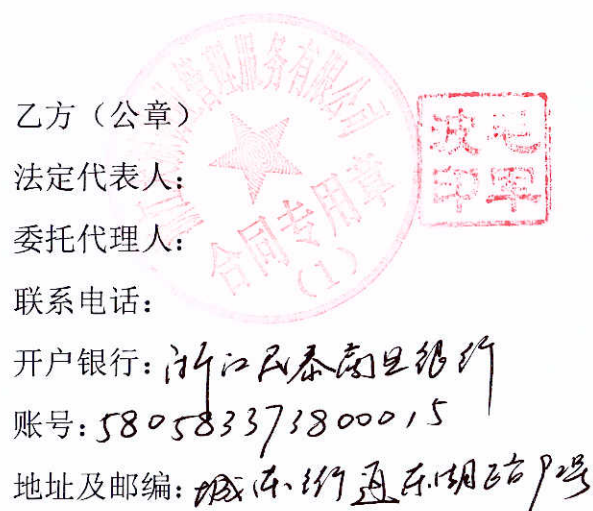 管理服务有限公司
合同专用章
(1)
毛军
波印
乙方（公章）
法定代表人：
委托代理人：
联系电话：
开户银行：浙江民泰商业银行
账号：580583373800015
地址及邮编：城东街道东湖路号